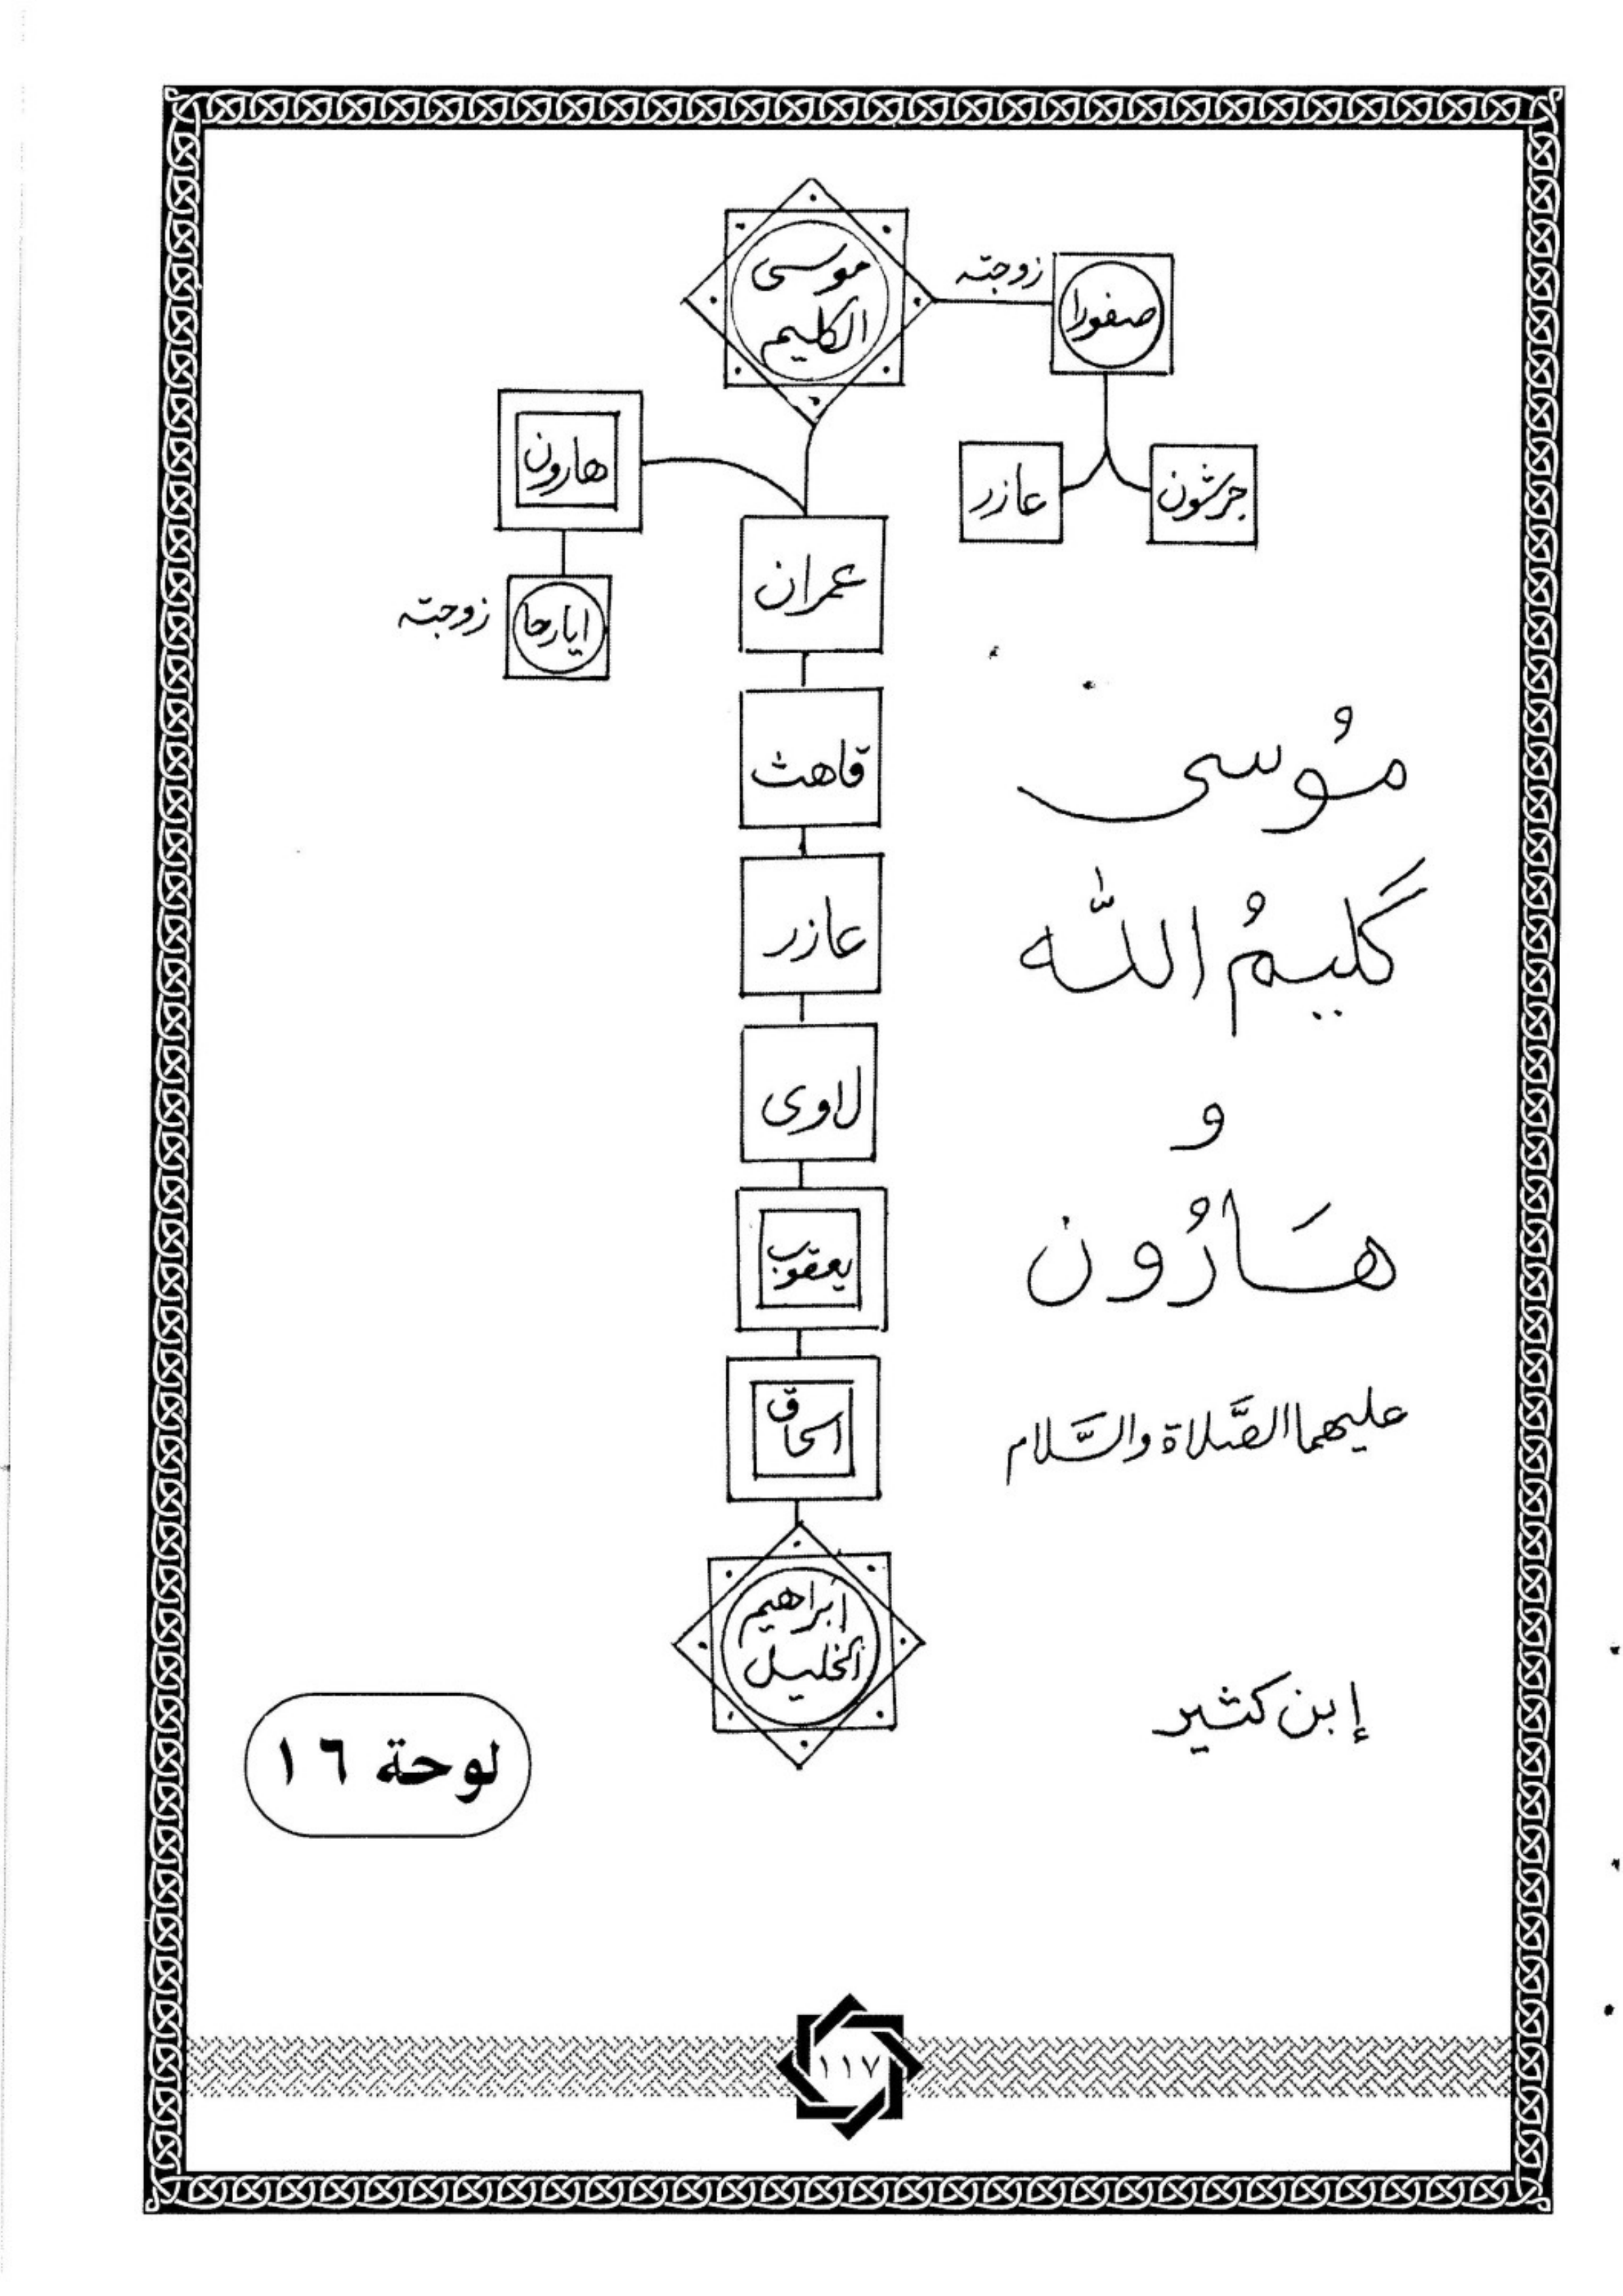 موسى
الكليم
زوجته
صفورا
جرشون
عازر
هارون
ايارحا
زوجته
عمران
قاهث
عازر
لاوى
يعقوب
اسحاق
إبراهيم
الخليل
مُوسى
كَليمُ اللّٰه
و
هَارُون
عليهما الصَّلاة والسَّلام
إبن كثير
لوحة ١٦
١١٧